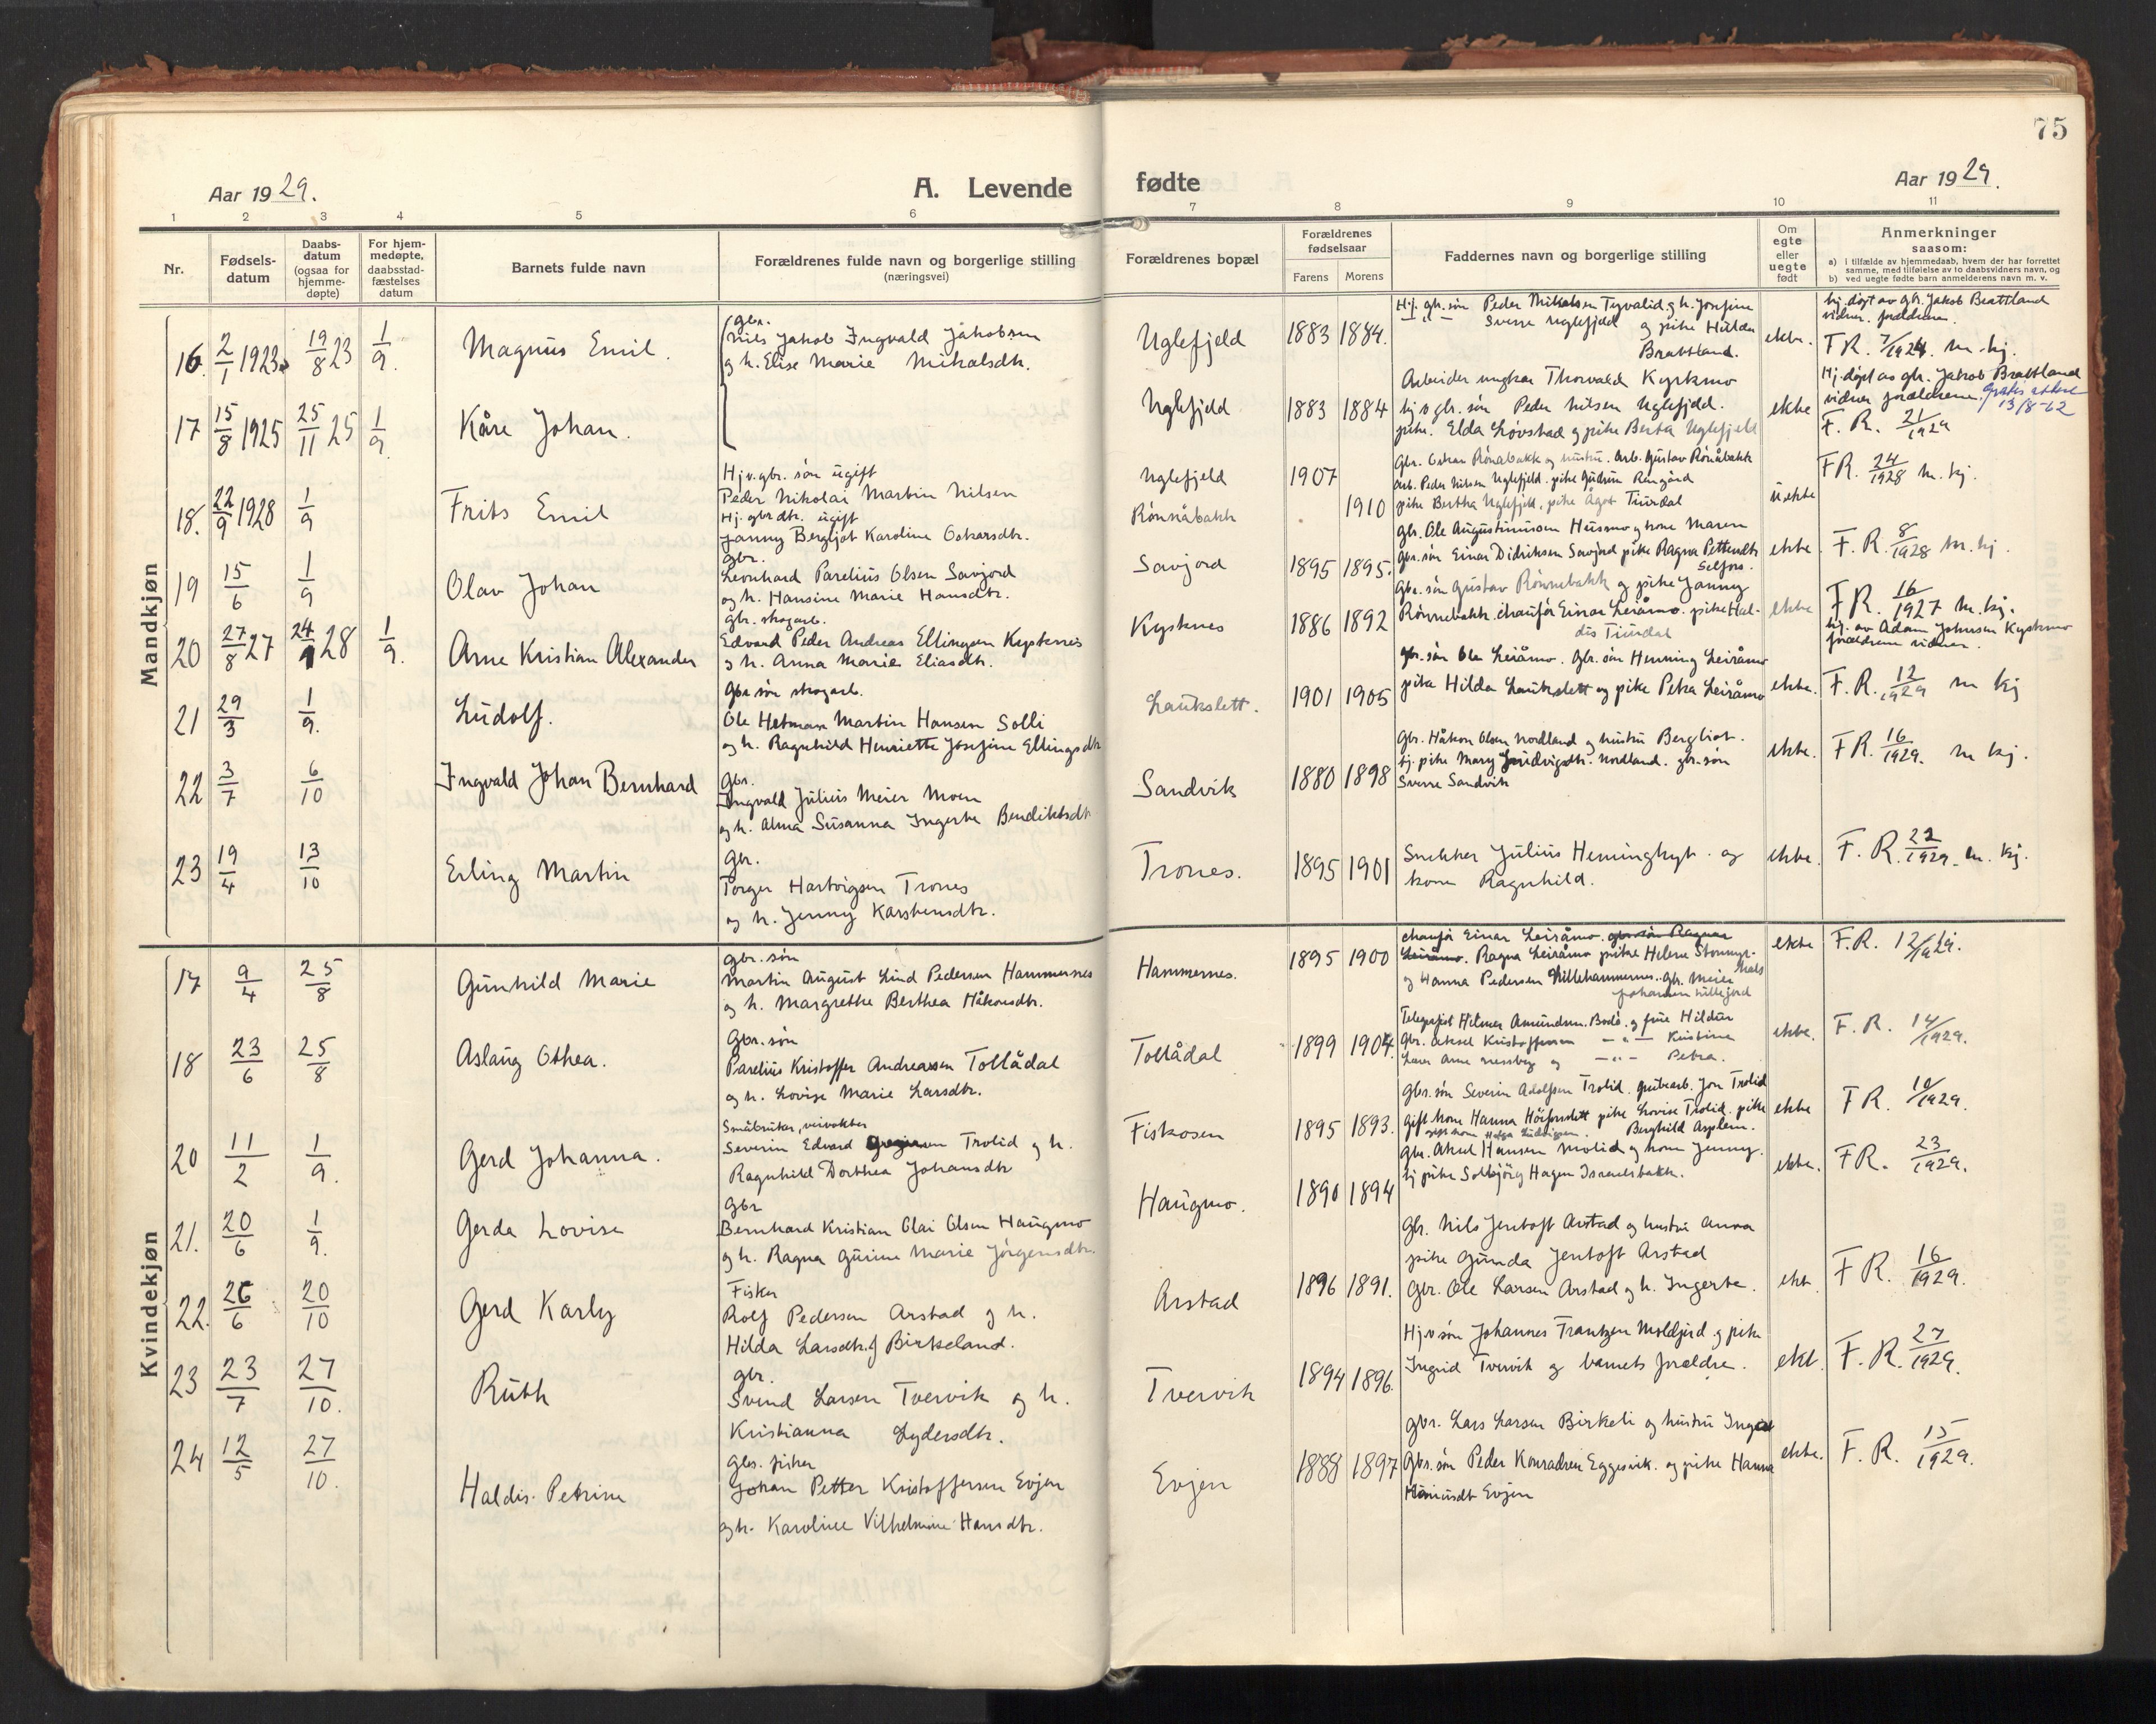 75
Aar 1929.
A. Levende fødte
Aar 1929.
1 2 3 4 5 6 7 8 9 10 11
Nr.
Fødsels-
datum
Daabs-
datum
(ogsaa for
hjemme-
døpte)
For hjem-
medøpte,
daabsstad-
fæstelses
datum
Barnets fulde navn
Forældrenes fulde navn og borgerlige stilling
(næringsvei)
Forældrenes bopæl
Forældrenes
fødselsaar
Farens Morens
Faddernes navn og borgerlige stilling
Om
egte
eller
uegte
født
Anmerkninger
saasom:
a) i tilfælde av hjemmedaab, hvem der har forrettet
samme, med tilføielse av to daabsvidners navn, og
b) ved uegte fødte barn anmelderens navn m. v.
Mandkjøn
16. 2/1 1923 19/8 23 1/9.
Magnus Emil.
gbr.
Nils Jakob Ingvald Jakobsen
og h. Elise Marie Mikalsdtr.
Uglefjeld
1883 1884.
Hj. gbr. søn Peder Mikalsen Tyvalid og h. Josefine
Sverre Uglefjeld og pike Hilda
Brattland.
ekte.
hj. døpt av gbr. Jakob Brattland
vidner. forældrene.
F R. 7/1924. m. kj.
17 15/8 1925 25/11 25 1/9
Kåre Johan.
Uglefjeld
1883 1884
Arbeider ungkar Thorvald Kyrkmo
hj. v. gbr. søn Peder Nilsen Uglefjeld.
pike. Elda Løvstad og pike Berta Uglefjeld
ekte
Hj. døpt av gbr. Jakob Brattland
vidner forældrene. Gratis attest
13/8-62
F. R. 21/1929
18. 22/9 1928 1/9
Frits Emil
Hj. v. gbr. søn ugift
Peder Nikolai Martin Nilsen
Hj. gbr. dtr. ugift
Janny Bergljot Karoline Oskarsdtr.
Uglefjeld
Rønnåbakk
1907
1910
Gbr. Oskar Rønåbakk og hustru. Arb. Gustav Rønåbakk
arb. Peder Nilsen Uglefjeld. pike Gudrun Rengård
pike Bertha Uglefjeld, pike Ågot Tiurdal
uekte
F R. 24/1928 m. kj.
19 15/6 1/9
Olav Johan
gbr.
Leonhard Parelius Olsen Savjord
og h. Hansine Marie Hansdtr.
Savjord
1895 1895.
gbr. Ole Augustinussen Husmo og kone Maren
gbr. søn Einar Didriksen Savjord pike Ragna Pettersdtr
Selfors.
ekte
F. R. 8/1928 m. kj.
20 27/8 27 24/9 28 1/9.
Arne Kristian Alexander
gbr. skogarb.
Edvard Peder Andreas Ellingsen Kystenes
og h. Anna Marie Eliasdtr.
Kystnes
1886 1892
Gbr. søn Gustav Rønnebakk og pike Janny
Rønnebakk. chaufør Einar Leiråmo. pike Hal-
dis Tiurdal
ekte
F R. 16/1927 m. kj.
hj. av Adam Johnsen Kystmo
forældrene vidner.
21 29/3 1/9.
Ludolf.
Gbr søn skogarb.
Ole Hetman Martin Hansen Solli
og h. Ragnhild Henriette Josefine Ellingsdtr
Laukslett.
1901 1905
gbr. søn Ole Leiråmo. Gbr. søn Henning Leiråmo
pike Hilda Laukslett og pike Petra Leiråmo
ekte.
F. R. 12/1929 m kj
22 3/7 6/10
Ingvald Johan Bernhard
Gbr.
Ingvald Julius Meier Moen
og h. Alma Susanna Ingerte Bendiktsdtr
Sandvik
1880 1898
Gbr. Håkon Olsen Nordland og hustru Bergliot.
hj. pike Mary Ludvigsdtr. Nordland. gbr. søn
Sverre Sandvik
ekte.
F R. 16/1929. m kj.
23 19/4 13/10
Erling Martin
Gbr.
Torger Hartvigsen Trones
og h. Jenny Karstensdtr.
Trones.
1895 1901
Snekker Julius Heminghyt. og
kone Ragnhild.
ekte.
F. R. 22/1929. m. kj.
Kvindekjøn
17 9/4 25/8
Gunhild Marie
Gbr. søn
Martin August Lind Pedersen Hammernes
og h. Margrethe Berthea Håkonsdtr.
Hammernes.
1895 1900
chaufør Einar Leiråmo. gbr. søn Ragnar
Leiråmo. Ragna Leiråmo pike Helene
og Hanna Pedersen Lillehammernes. Gbr. Meier
Johansen Lillegård
ekte
F. R. 12/1929 kj.
18 23/6 25/8
Aslaug Othea.
Gbr. søn
Parelius Kristoffer Andreassen Tollådal
og h. Lovise Marie Larsdtr.
Tollådal
1899 1904.
Telegrafist Hilmer Amundsen. Bodø. og frue Hildur
Gbr. Aksel Kristoffersen —"— Kristine
Lærer Arne og —"— Petra.
ekte.
F. R. 14/1929.
20 11/2 1/9.
Gerd Johanna.
Småbruker, veivokter
Severin Edvard Trolid og h.
Ragnhild Dorthea Johansdtr
Fiskosen
1895 1893.
Gbr. søn Severin Adolfsen Trolid. grubearb. Jon Trolid
Gift kone Hanna Höiforslett pike Lovise Trolid. pike
Berghild Asplem.
ekte
F R. 10/1929.
21. 20/6 1/9.
Gerda Lovise
Gbr
Bernhard Kristian Olai Olsen Haugmo
og h. Ragna Gurine Marie Jörgensdtr.
Haugmo.
1890 1894
Gbr. Aksel Hansen Molid og kone Jenny.
hj pike Solbjörg Hagen Israelsbakk.
ekte.
F R. 23/1929.
22. 26/6 20/10
Gerd Karly
Fisker
Rolf Pedersen Arstad og h.
Hilda Larsdtr. f Birkeland.
Arstad
1896 1891.
Gbr. Nils Jentoft Arstad og hustru Anna
pike Gunda Jentoft Arstad
Gbr. Ole Larsen Arstad og h. Ingerte.
ekt.
F R. 16/1929.
23 23/7 27/10.
Ruth
Gbr.
Svend Larsen Tvervik og h.
Kristianna Lydersdtr.
Tvervik
1894 1896.
Hj. v søn Johannes Frantzen Moldjord og pike
Ingrid Tvervik og barnets forældre.
ekt.
F. R. 27/1929.
24 12/5 27/10.
Haldis Petrine
Gbr. fisker
Johan Petter Kristoffersen Evjen
og h. Karoline Vilhelmine Hansdtr.
Evjen
1888 1897
gbr. Lars Larsen Birkeli og hustru
Gbr. søn Peder Konradsen Eggesvik. og pike Hanna
Evjen
ekte.
F. R. 15/1929.